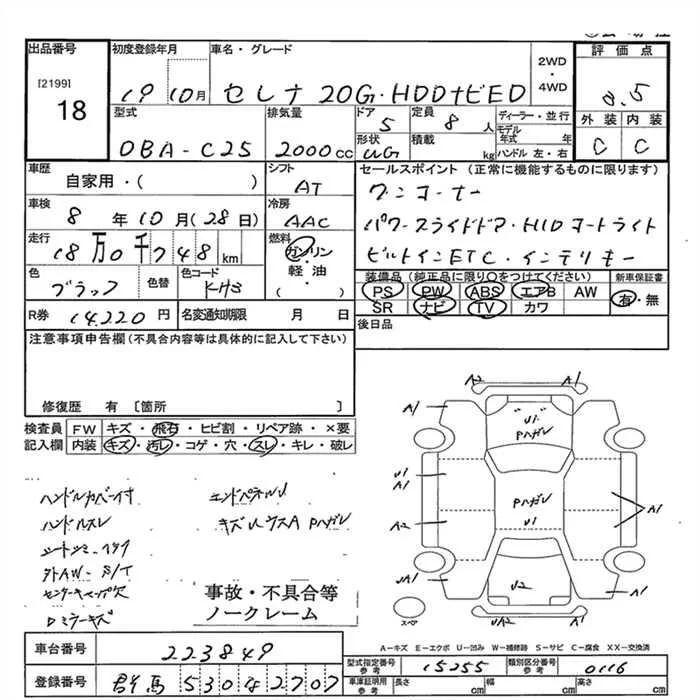 出品番号
[2199]
18
初度登録年月
19 10月
車名・グレード
セレナ 20G・HDDナビED
2WD
・
4WD
評価点
3.5
外装 内装
C C
型式
DBA-C25
排気量
2000cc
ドア
5
形状
UG
定員
8人
積載
kg
ディーラー・並行
モデル年式 年
ハンドル 左・右
車歴
自家用・( )
シフト
AT
車検
8年10月(28日)
冷房
AAC
走行
18万0千748km
燃料
ガソリン
・
軽・油
( )
色
ブラック
色替
色コード
KH3
R券
14220円
名変通知期限
月 日
セールスポイント(正常に機能するものに限ります)
ワンオーナー
パワースライドドア・HIDヘッドライト
ビルトインETC・インテリキー
装備品(純正品に限り○をつけてください)
PS PW ABS エアB AW
SR ナビ TV カワ
新車保証書
有・無
後日品
注意事項申告欄(不具合内容等は具体的に記入して下さい)
修復歴 有〔箇所 〕
検査員記入欄
FW キズ・飛石・ヒビ割・リペア跡・×要
内装 キズ・汚レ・コゲ・穴・スレ・キレ・破レ
ハンドルカバー付
ハンドルスレ
外AW-S/T
センターキャップ欠
Dミラーキズ
エンドパネルU
事故・不具合等
ノークレーム
A2 A1
A1 A1
U1
Pハガレ
U1
A1
Pハガレ
U1
A1
A2
UA1 A1
U2
UA2 A1
スペア
A-キズ E-エクボ U-凹み W-補修跡 S-サビ C-腐食 XX-交換済
車台番号
223849
登録番号
群馬 530 ち 2707
型式指定番号
参考
15255
類別区分番号
参考
0116
車庫証明用
参考
長さ cm 幅 cm 高さ cm